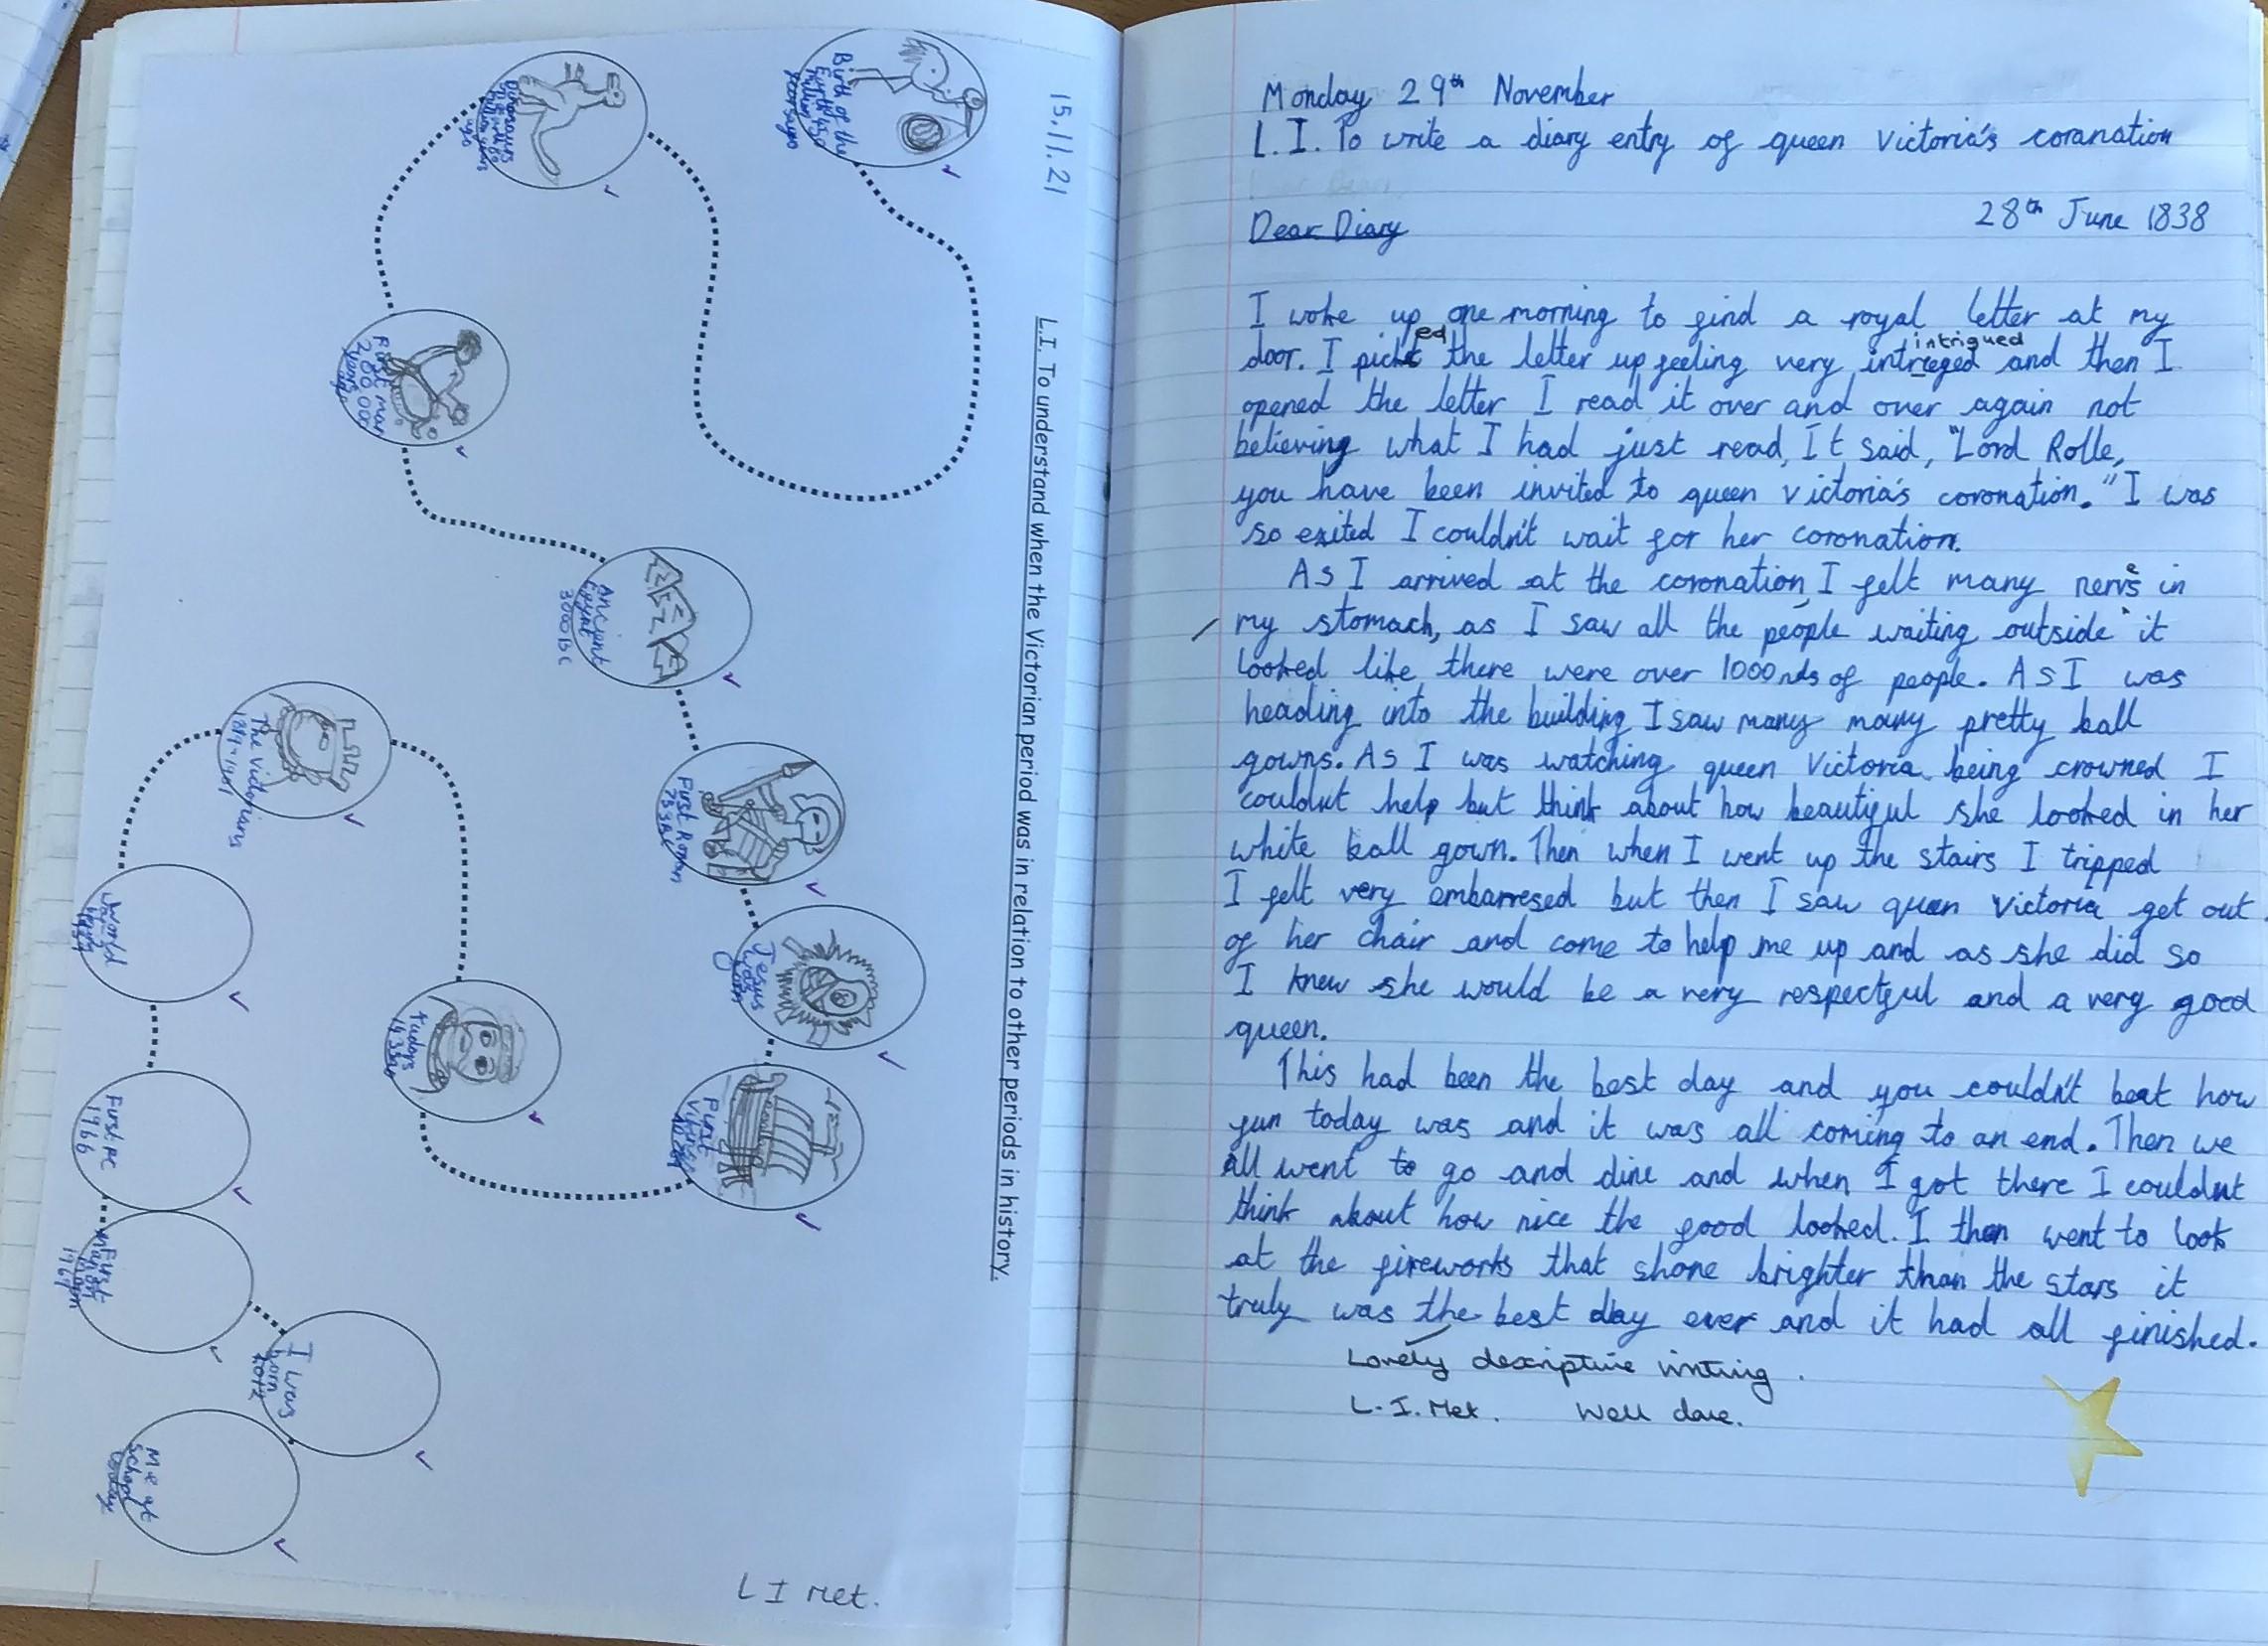 15.11.21
L.I. To understand when the Victorian period was in relation to other periods in history.
Birth of the
Earth 450
million
years ago
Dinosaurs
million years
ago
First man
200,000
years
ago
Ancient
Egypt
3000BC
First Roman
753BC
Jesus
was
born
First
Vikings
Tudors
The Victorians
World
First PC
1966
First
man on
moon
1969
I was
born
2012
Me at
school
today
L I Met.
Monday 29th November
L.I. To write a diary entry of queen Victoria's coranation
28th June 1838
Dear Diary
I woke up one morning to find a royal letter at my
ed intrigued
door. I pickt the letter up feeling very intreged and then I
opened the letter I read it over and over again not
believing what I had just read, It said, "Lord Rolle,
you have been invited to queen victoria's coronation." I was
so exited I couldn't wait for her coronation.
As I arrived at the coronation, I felt many nerves in
my stomach, as I saw all the people waiting outside it
looked like there were over 1000nds of people. As I was
heading into the building I saw many many pretty ball
gowns. As I was watching queen Victoria being crowned I
couldnt help but think about how beautiful she looked in her
white ball gown. Then when I went up the stairs I tripped
I felt very embarresed but then I saw queen Victoria get out
of her chair and come to help me up and as she did so
I knew she would be a very respectful and a very good
queen.
This had been the best day and you couldn't beat how
fun today was and it was all coming to an end. Then we
all went to go and dine and when I got there I couldnt
think about how nice the food looked. I then went to look
at the fireworks that shone brighter than the stars it
truly was the best day ever and it had all finished.
Lovely descriptive writing.
L.I. Met. Well done.